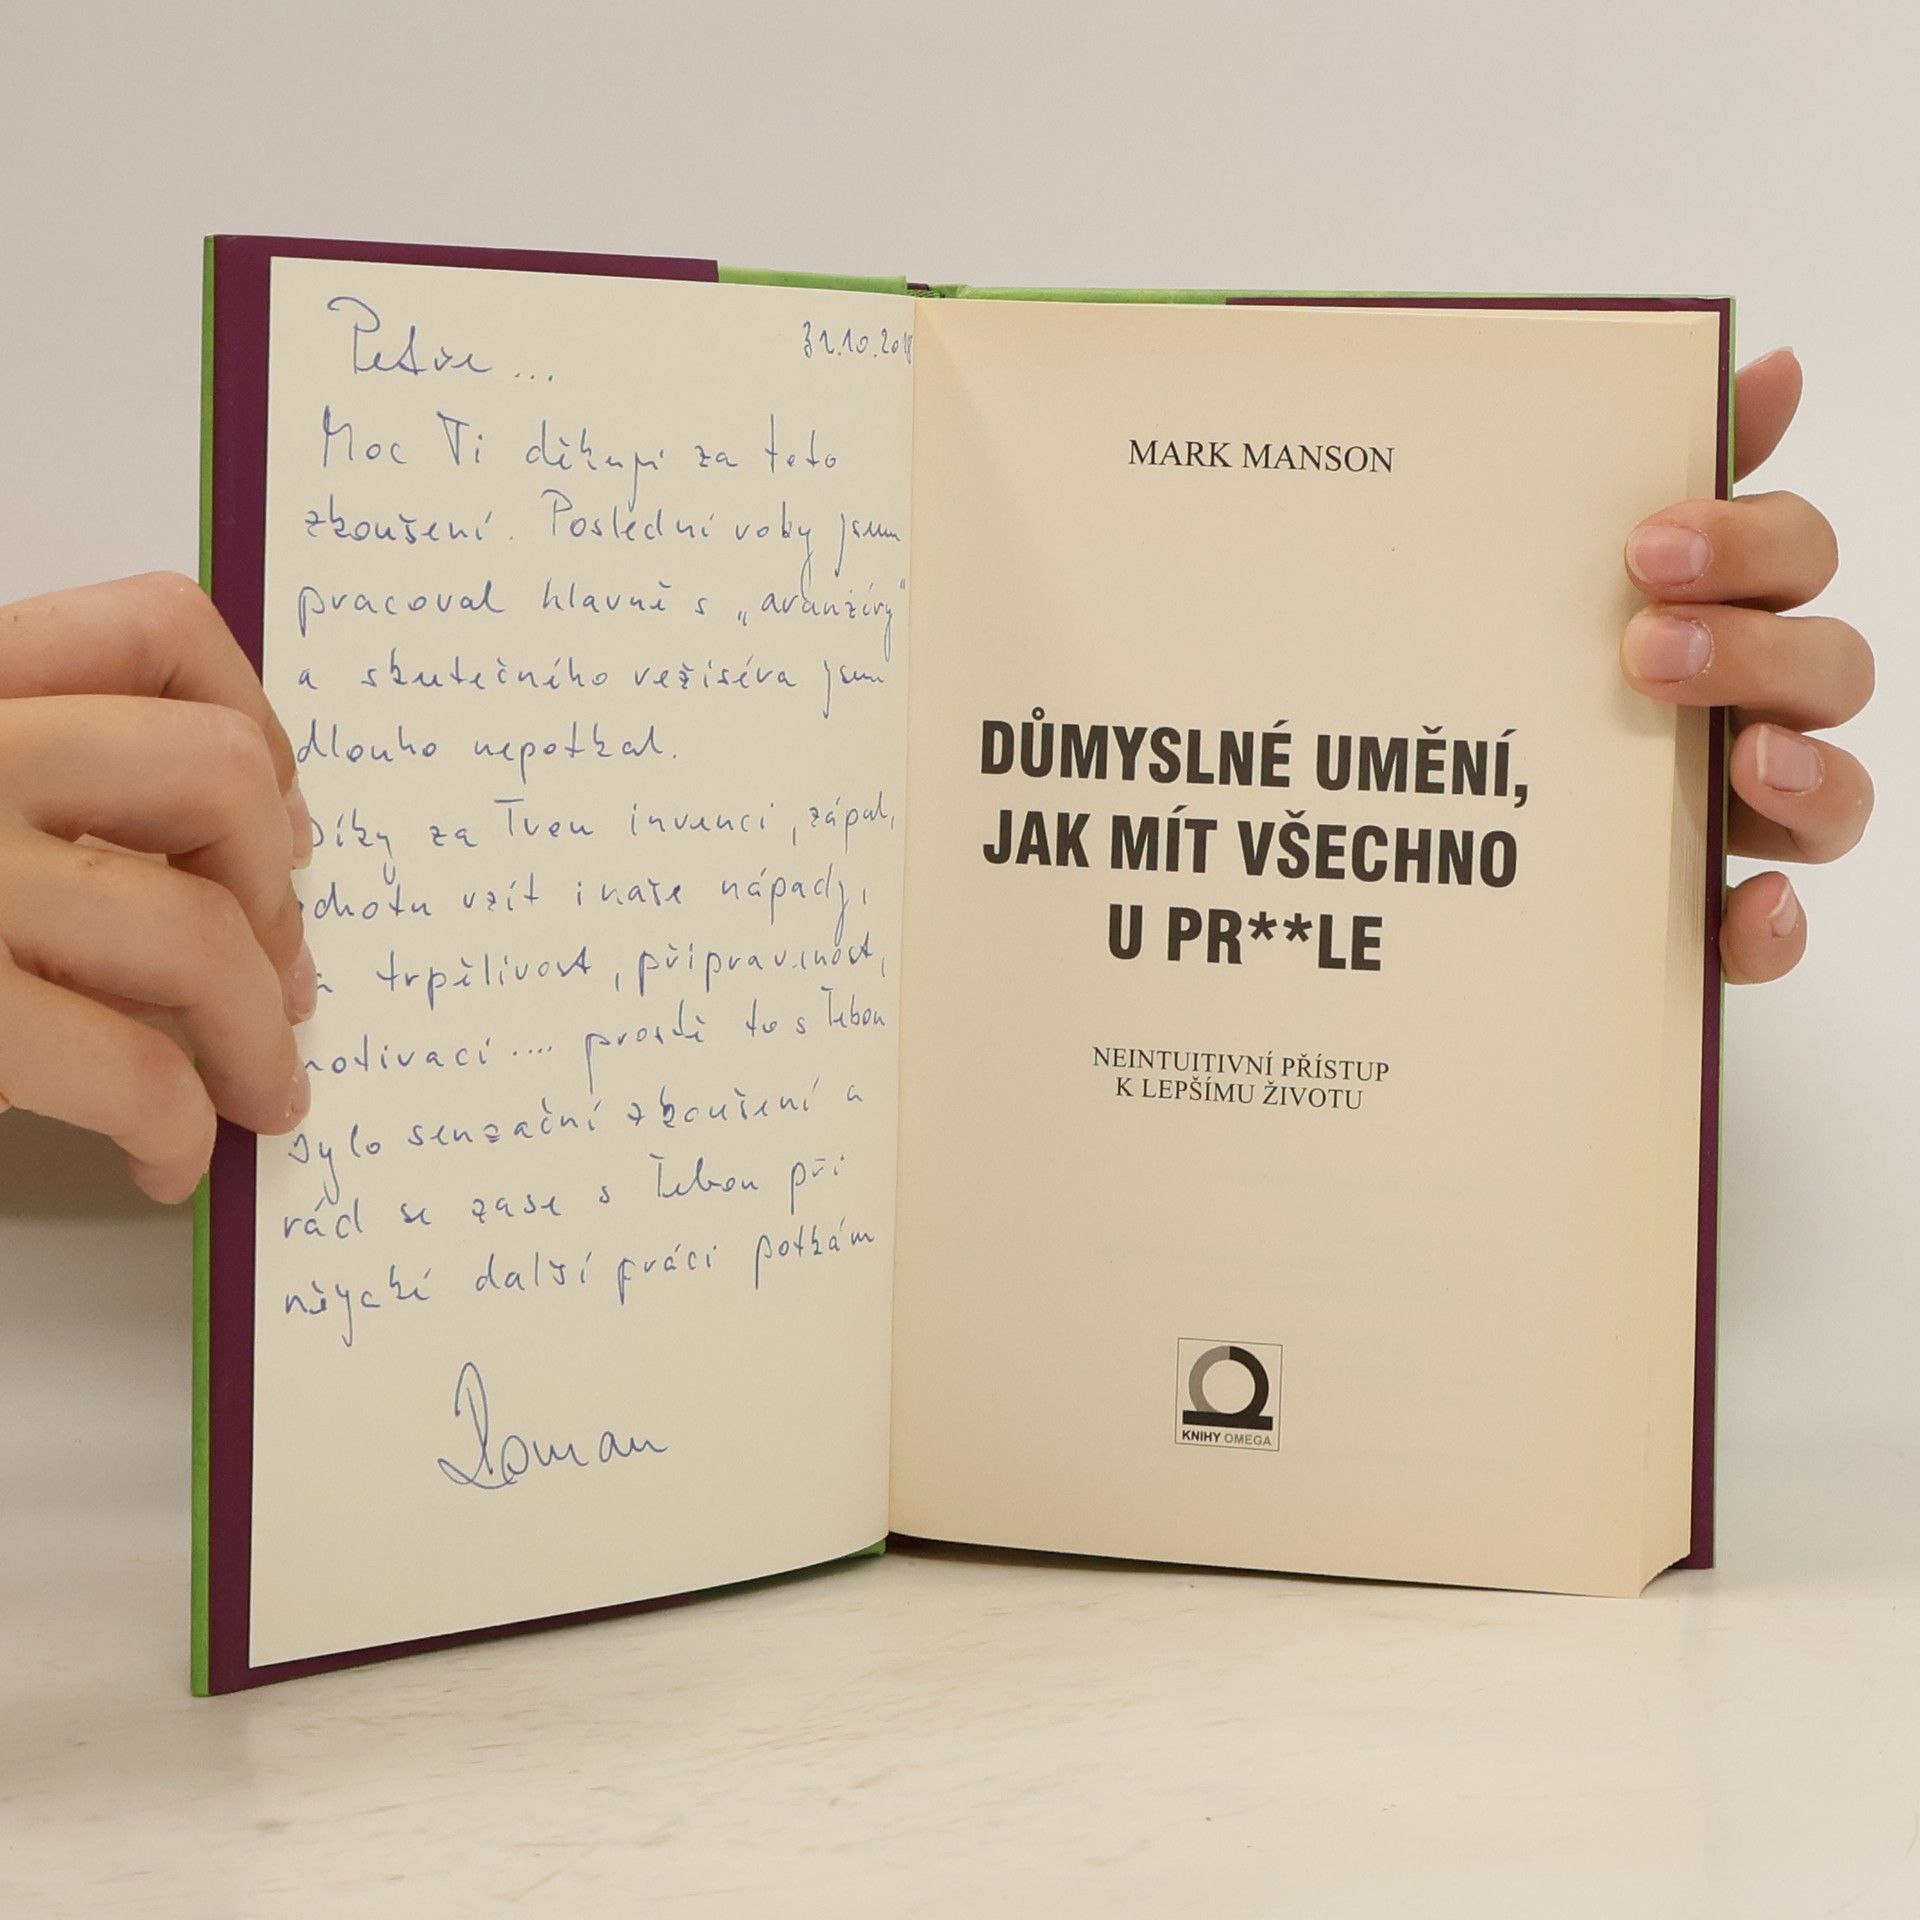 Petře...
31.10.2018
Moc Ti děkuji za toto
zkoušení. Poslední roky jsem
pracoval hlavně s „aranžéry“
a skutečného režiséra jsem
dlouho nepotkal.
Díky za Tvou invenci, zápal,
ochotu vzít i naše nápady,
za trpělivost, připravenost,
motivaci.... prostě to s Tebou
bylo senzační zkoušení a
rád se zase s Tebou při
nějaké další práci potkám
Roman
MARK MANSON
DŮMYSLNÉ UMĚNÍ,
JAK MÍT VŠECHNO
U PR**LE
NEINTUITIVNÍ PŘÍSTUP
K LEPŠÍMU ŽIVOTU
KNIHY OMEGA